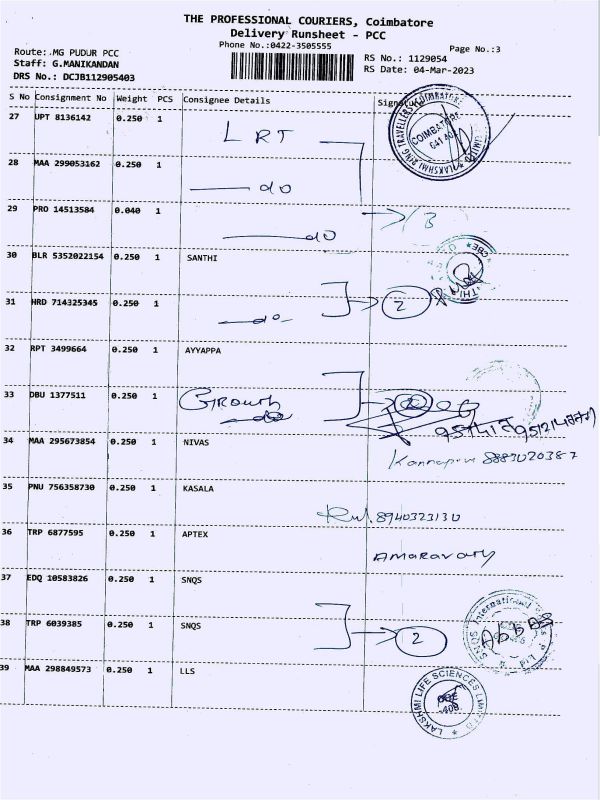 THE PROFESSIONAL COURIERS, Coimbatore
Delivery Runsheet - PCC
Phone No.:0422-3505555
Page No.:3
Route: MG PUDUR PCC
Staff: G.MANIKANDAN
DRS No.: DCJB112905403
RS No.: 1129054
RS Date: 04-Mar-2023
S No Consignment No Weight PCS Consignee Details Signature
27 UPT 8136142 0.250 1 LRT
COIMBATORE
28 MAA 299053162 0.250 1 do
29 PRO 14513584 0.040 1 do
3
30 BLR 5352022154 0.250 1 SANTHI
31 HRD 714325345 0.250 1 do
2
32 RPT 3499664 0.250 1 AYYAPPA
33 DBU 1377511 0.250 1 Growth
do
34 MAA 295673854 0.250 1 NIVAS
8883020387
35 PNU 756358730 0.250 1 KASALA
8940323130
36 TRP 6877595 0.250 1 APTEX
Amaravathy
37 EDQ 10583826 0.250 1 SNQS
38 TRP 6039385 0.250 1 SNQS
2
SNQS International
ABBAS
39 MAA 298849573 0.250 1 LLS
LAKSHMI LIFE SCIENCES LIMITED